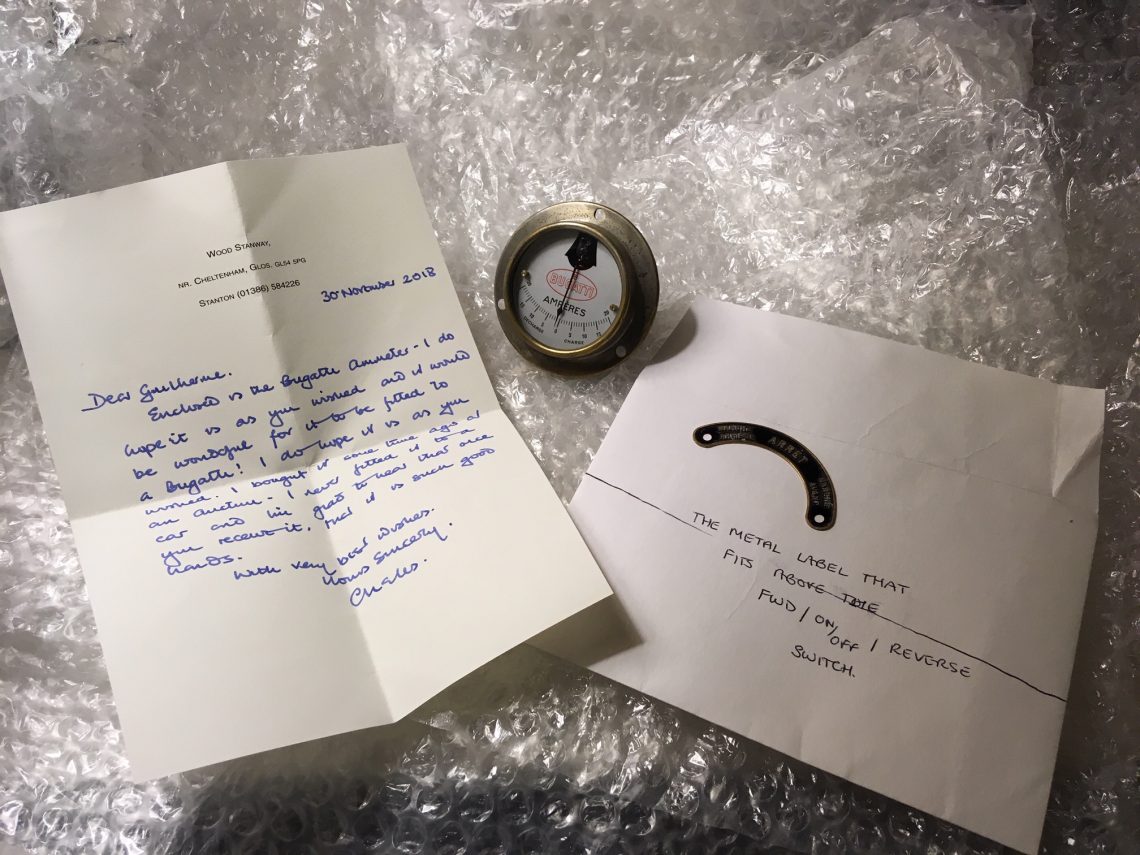 WOOD STANWAY,
NR. CHELTENHAM, GLOS. GL54 5PG
STANTON (01386) 584226
30 November 2018
Dear Guilherme.
Enclosed is the Bugatti Ammeter - I do
hope it is as you wished and it would
be wonderful for it to be fitted to
a Bugatti! I do hope it is as you
wished. I bought it some time ago at
an auction - I never fitted it to a
car and glad to hear that once
you receive it, that it is such good
hands.
With very best wishes.
Yours Sincerely.
Charles.
BUGATTI
AMPÈRES
20 15 10 5 0 5 10 15 20
DECHARGE CHARGE
MARCHE
ARRET
MARCHE
THE METAL LABEL THAT
FITS ABOVE THE
FWD / ON / OFF / REVERSE
SWITCH.